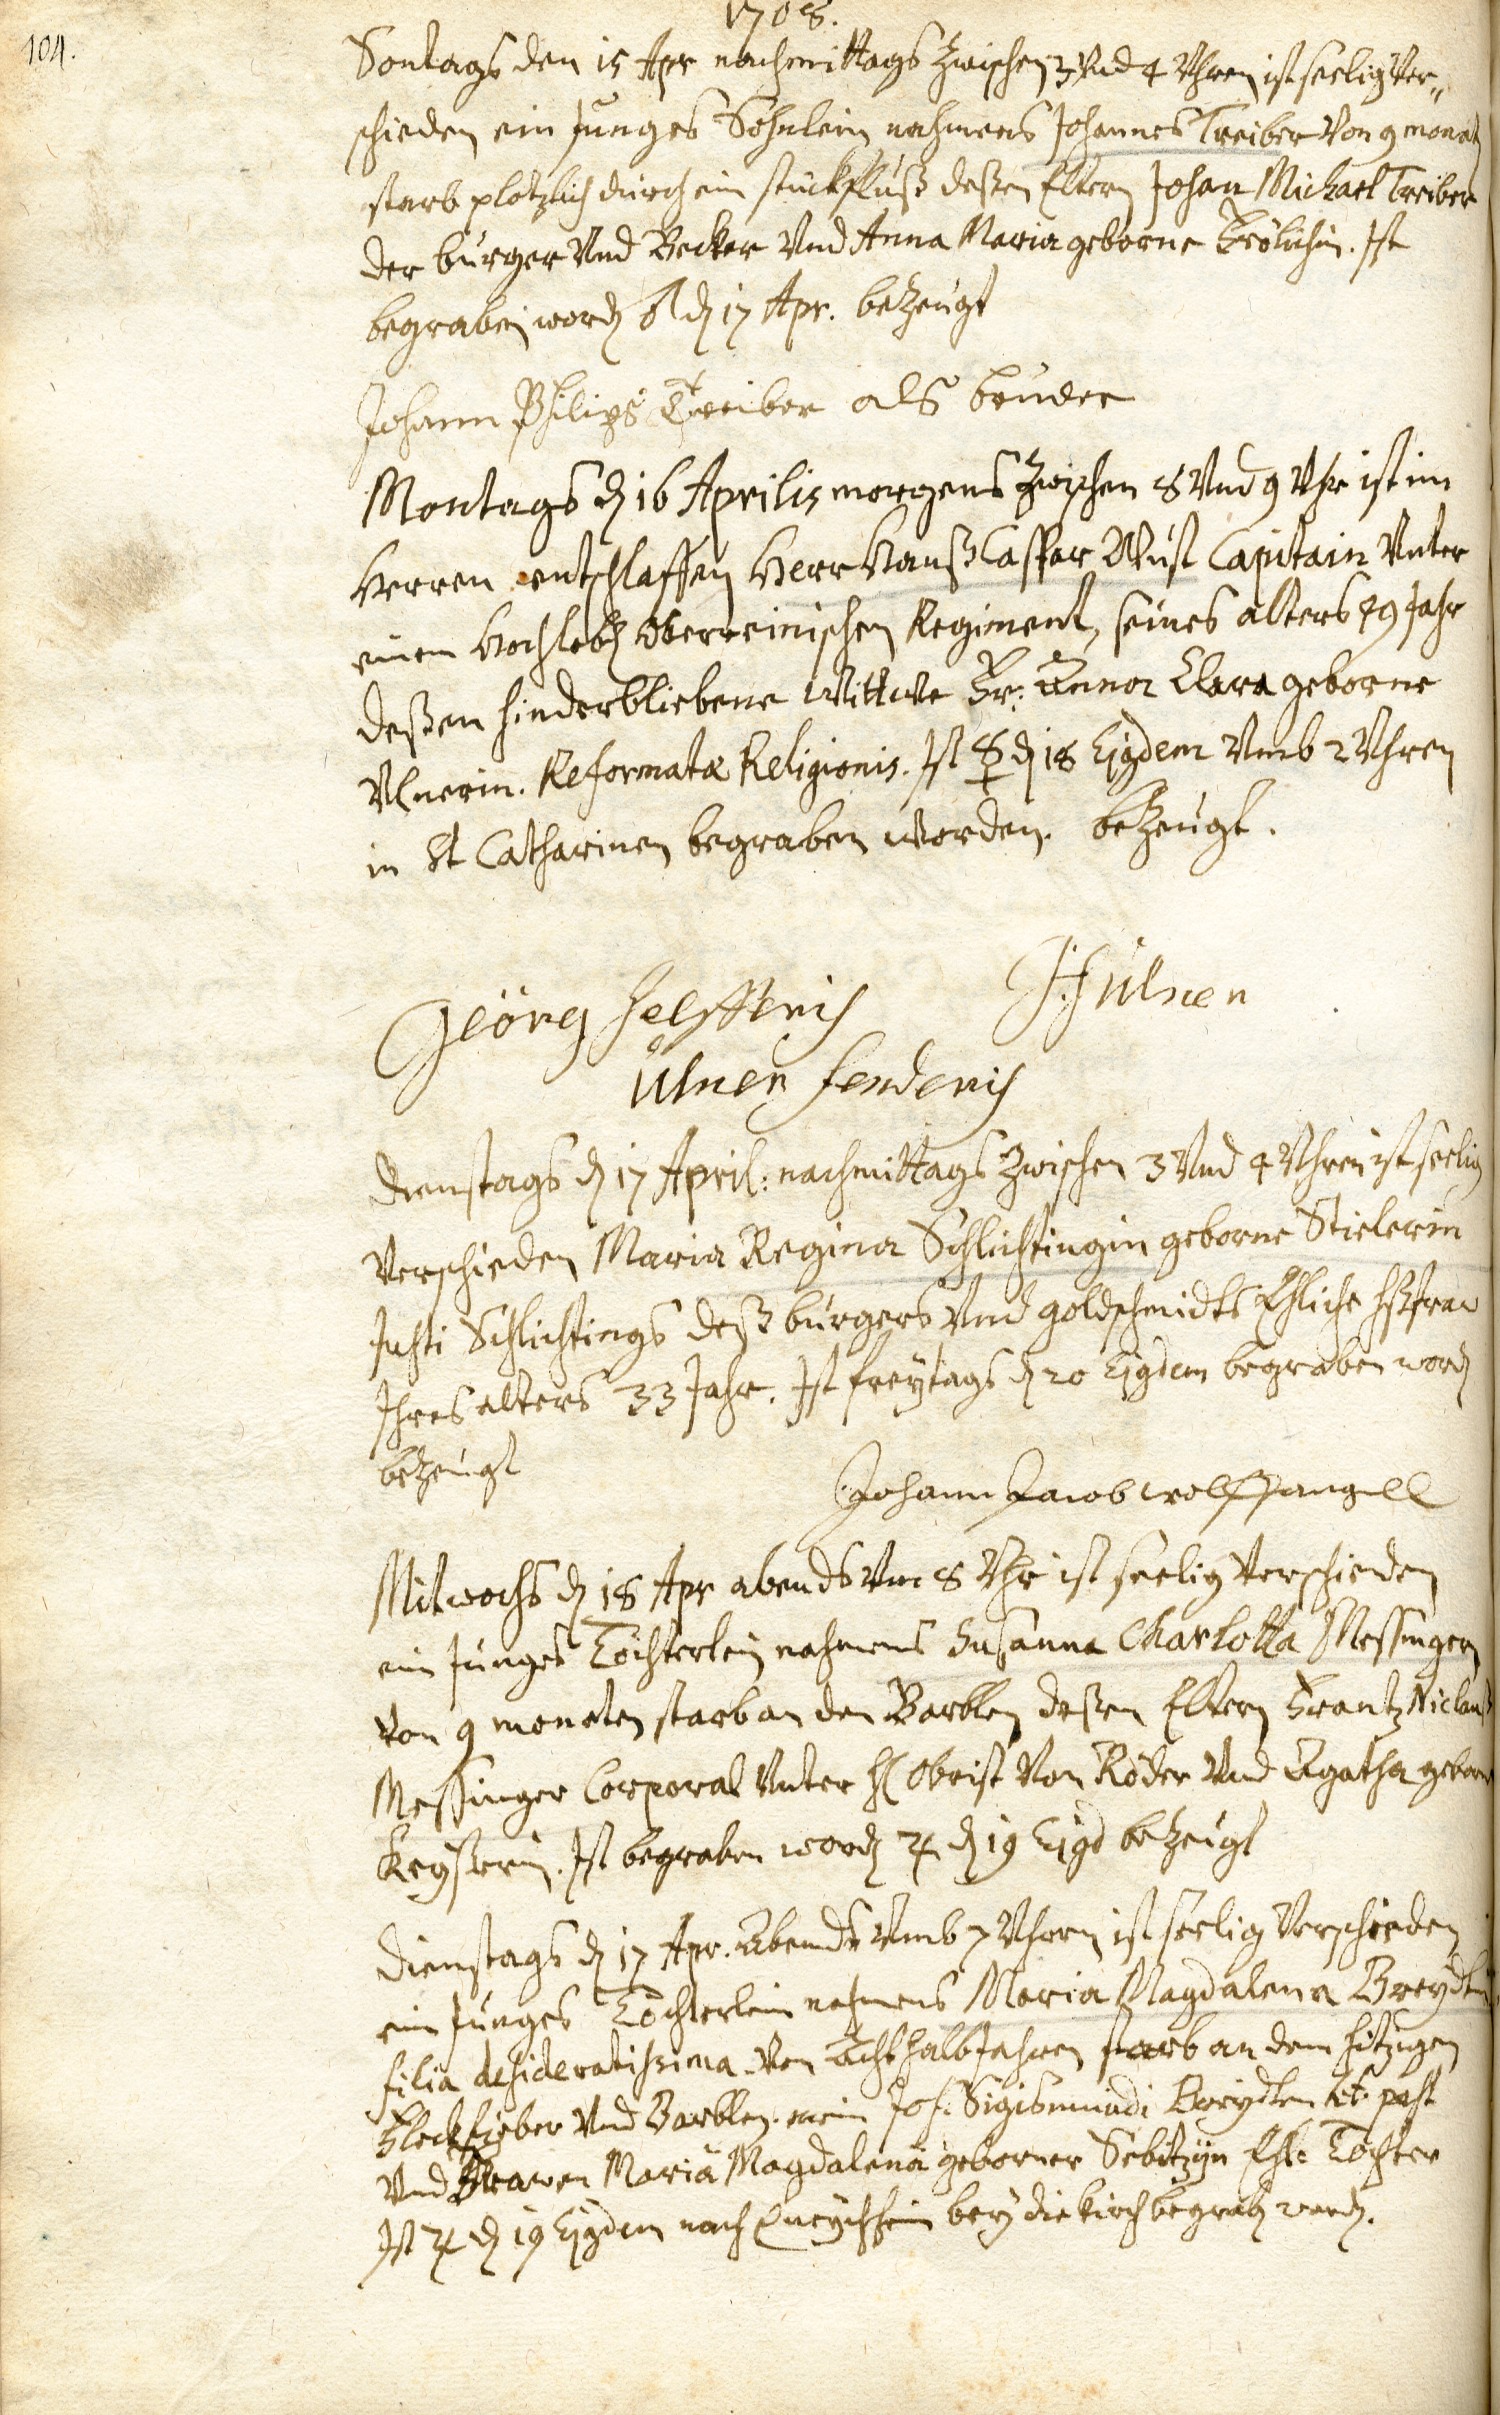 104.
1708.
Sontags den 15 Apr nachmittags zwischen 3 Vnd 4 Vhren ist seelig Ver„
schieden ein junges Söhnlein nahmens Johannes Treiber Von 9 monat
starb plötzlich durch ein stückfluß deßen Eltern Johan Michael Treiber
der burger Vnd Becker Vnd Anna Maria geborne Frölichin. Ist
begraben word ♂ d 17 Apr. bezeugt
Johann Philips Treiber als bruder
Montags d 16 Aprilis morgens zwischen 8 Vnd 9 Vhr ist im
Herren entschlaffen Herr Hanß Casspar Wüst Capitain Vnter
einem Hochlobl Oberreinischen Regiment, seines alters 49 Jahr
deßen hinderbliebene Wittwe Fr: Anna Clara geborne
Vlnerin. Reformatæ Religionis. Ist ☿ d 18 Ejgdem Vmb 2 Vhren
in St Catharinen begraben worden. bezeugt.
Geörg helfferich
ülner fenderich
JH ülner
Dienstags d 17 April: nachmittags zwischen 3 Vnd 4 Vhren ist seelig
Verschieden Maria Regina Schlichtingin geborne Stielerin
Justi Schlichtings deß burgers Vnd goldschmidts Ehliche hßfraw
Ihres alters 33 Jahr. Ist freytags d 20 Ejgdem begraben word
bezeugt
Johann Jacob wolffsangell
Mitwochs d 18 Apr abends Vm 8 Vhr ist seelig Verschieden
ein junges Töchterlein nahmens Susanna Charlotta Messingerin
Von 9 monaten starb an den Barblen deßen Eltern Frantz Niclauß
Messinger Corporal Vnter H Obrist Von Röder Vnd Agatha geborn
Keyserin. Ist begraben word ♃ d 19 Ejgd bezeugt
Dienstags d 17 Apr. Abends Vmb 7 Vhren ist seelig Verschieden
ein junges Töchterlein nahmens Maria Magdalena Breydtin
filia desideratissima Von Acht halb Jahren starb an dem hitzigen
Fleckfieber Vnd Barblen. mein Joh: Sigismundi Breydten
Vnd Frawen Maria Magdalena geborner Sebitzyn Ehl: Tochter
Ist ♃ d 19 Ejgdem nach bey die Kirch begrab word.